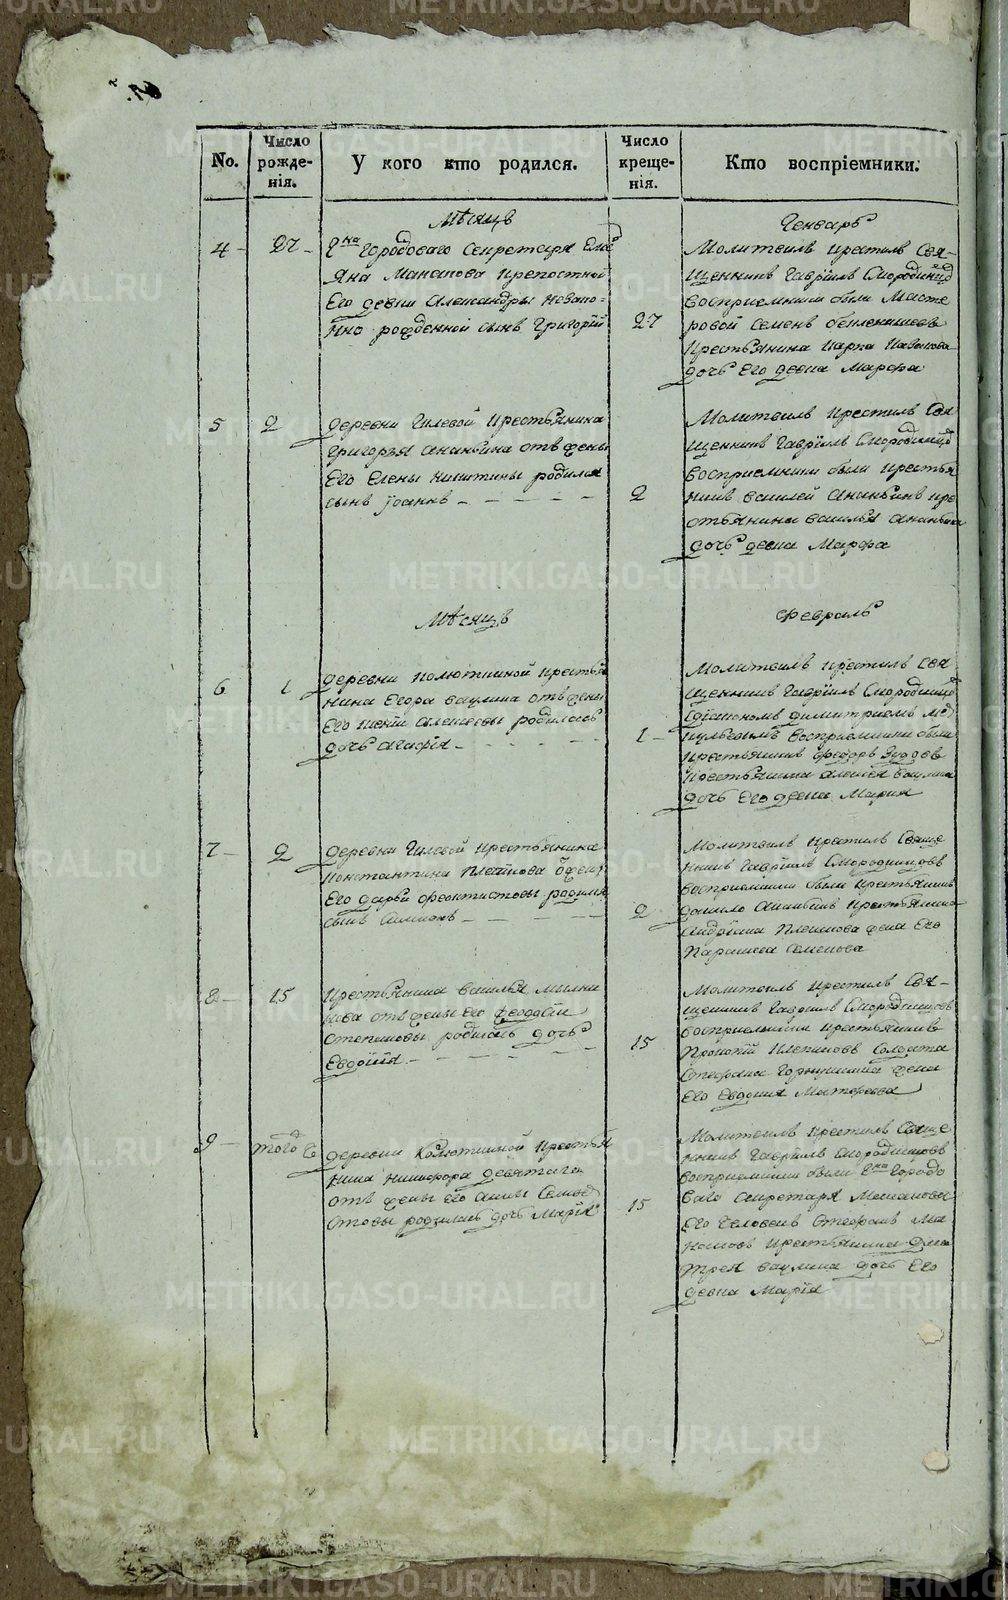 No.
Число рожде-нія.
У кого кто родился.
Число креще-нія.
Кто воспріемники.
Мѣсяцъ
Генварь
4
27
Городоваго Секретаря
Яна Манакова крепостной
Его девки Александры незако-
нно рожденной сынъ Григорій
27
Молитвилъ крестилъ Свя-
щенникъ Гавріилъ Смородинцовъ
Восприемники были Масте
ровой Семенъ
Крестьянина Карпа
дочь Его девка Марфа
5
2
деревни Гилевой Крестьянина
Григорья Ананьина отъ жены
Его Елены Никитины родился
сынъ Іоаннъ
2
Молитвилъ Крестилъ Свя
щенникъ Гавріилъ Смородинцовъ
Восприемники были Крестья
нинъ Василей Ананьинъ Кре
стьянина Василья Ананьина
дочь девка Марфа
Мѣсяцъ
Февраль
6
1
деревни Колюткиной Крестья
нина Егора Ваулина отъ жены
Его Алексеевы родилась
дочь Агафія
1
Молитвилъ Крестилъ Свя
щенникъ Гавріилъ Смородинцовъ
Съ діакономъ Димитріемъ
Восприемники были
Крестьянинъ Федоръ
Крестьянина Алексея Ваулина
дочь Его девка Мария
7
2
деревни Гилевой Крестьянина
Константина Плетнова
Его Дарьи Феоктистовы родился
сынъ Симионъ
2
Молитвилъ Крестилъ Свяще
нникъ Гавріилъ Смородинцовъ
восприемники были Крестьянинъ
Данило Ананьинъ Крестьянина
Андріяна жена Его
Семенова
8
15
Крестьянина Василья Мылни
кова отъ жены Его Феодосіи
Степановы родилась дочь
Евдокія
15
Молитвилъ Крестилъ Свя-
щенникъ Гавріилъ Смородинцовъ
восприемники Крестьянинъ
Прокопій Солдата
Стефана жена
Его Евдокия Матфеева
9
того ж
деревни Колюткиной Крестья
нина Никифора Девятаго
отъ жены Его Анны
родилась дочь Марія
15
Молитвилъ Крестилъ Свяще
нникъ Гавріилъ Смородинцовъ
восприемники были Городо
ваго Секретаря Манакова
Его Человекъ Стефанъ
Крестьянина Дми
трея Ваулина дочь Его
девка Марія
METRIKI.GASO-URAL.RU